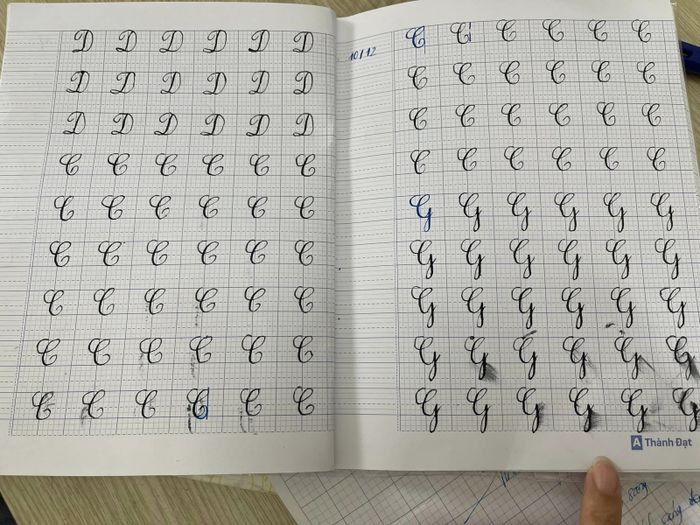 D D D D D D
D D D D D D
D D D D D D
C C C C C C
C C C C C C
C C C C C C
C C C C C C
C C C C C C
C C C C C C
10/12
C C C C C C
C C C C C C
C C C C C C
C C C C C C
G G G G G G
G G G G G G
G G G G G G
G G G G G G
G G G G G G
A Thành Đạt